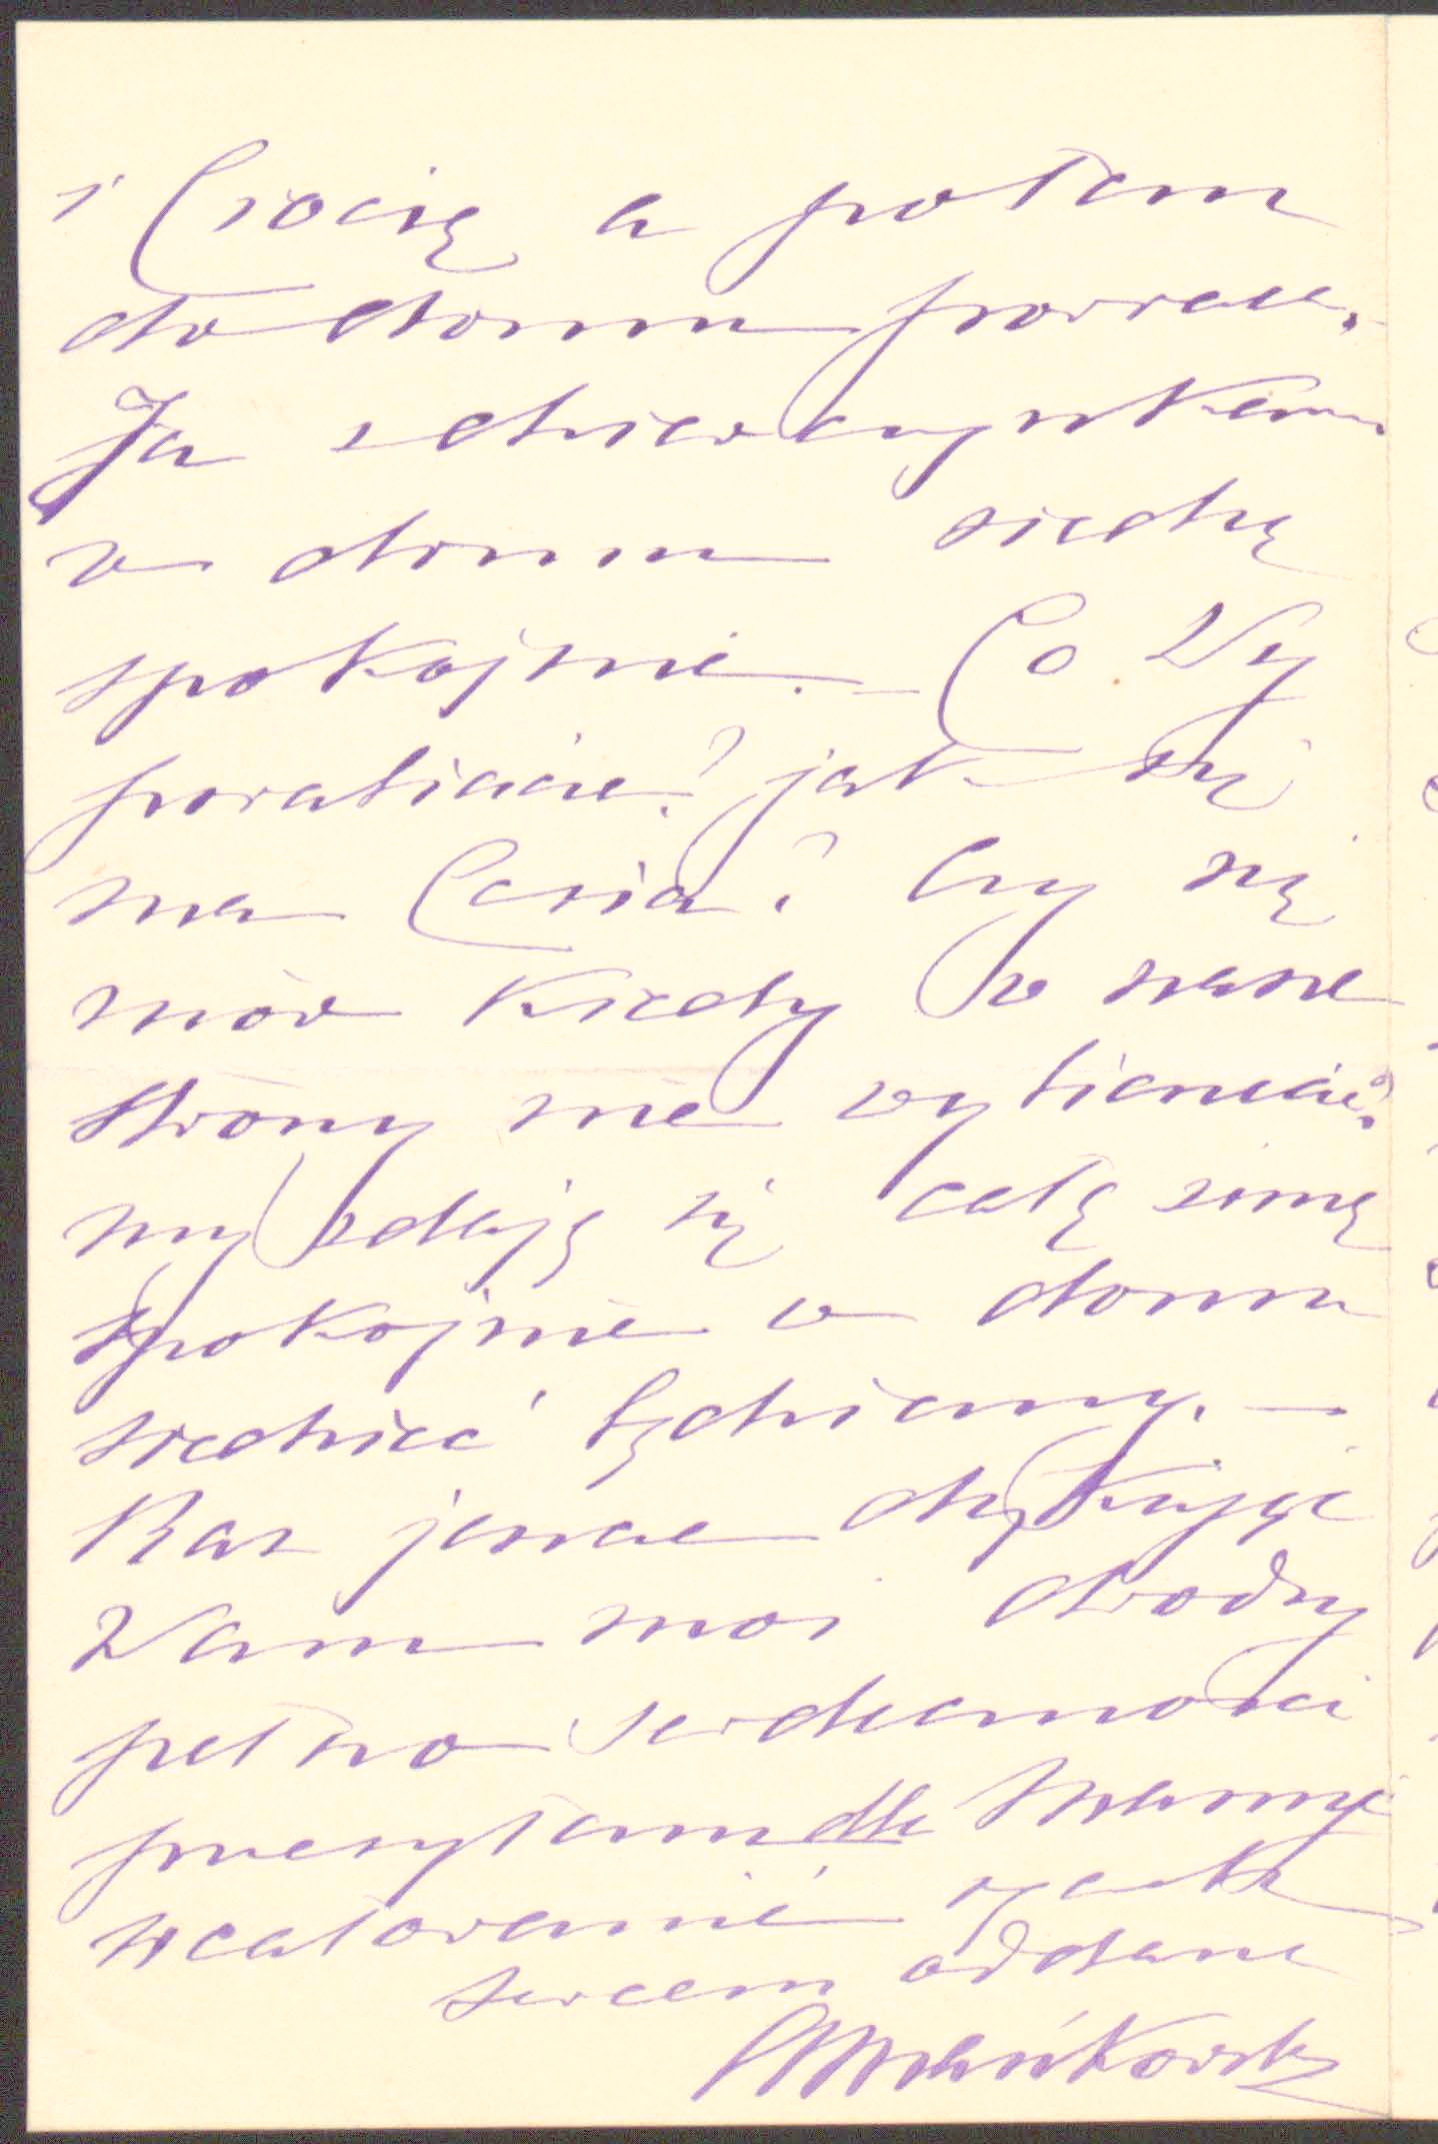 i Ciocię a potem
do domu powraca.
Ja z dzieciaczynkami
w domu siedzę
spokojnie. – Co Wy
porabiacie? jak się
ma Cesia? Czy się
mór kiedy w nasze
strony nie wybierzecie?
my zdaję się całą zimę
spokojnie w domu
siedzieć będziemy. –
Raz jeszcze dziękując
Wam moi drodzy
pełno serdeczności
przesyłam dla Mamy
ucałowanie rączek
sercem oddana
Mańkowska